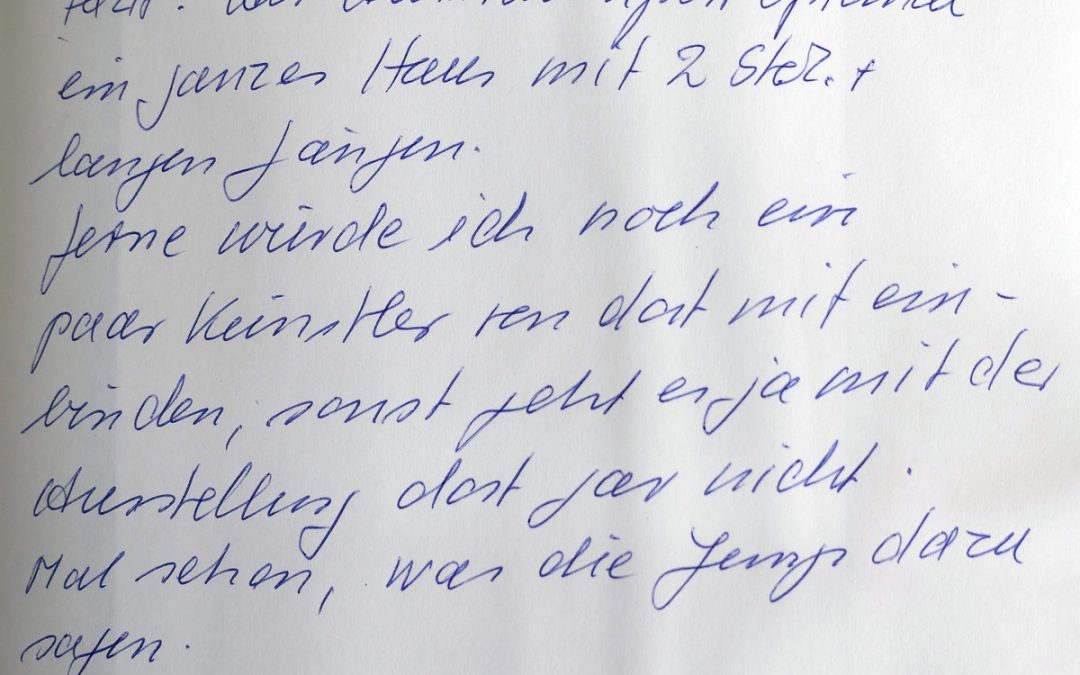 ein ganzes Haus mit 2 +
langen Gängen.
Gerne würde ich noch ein
paar Künstler von dort mit ein-
binden, sonst geht es ja mit der
Ausstellung dort gar nicht.
Mal sehen, was die Jungs dazu
sagen.